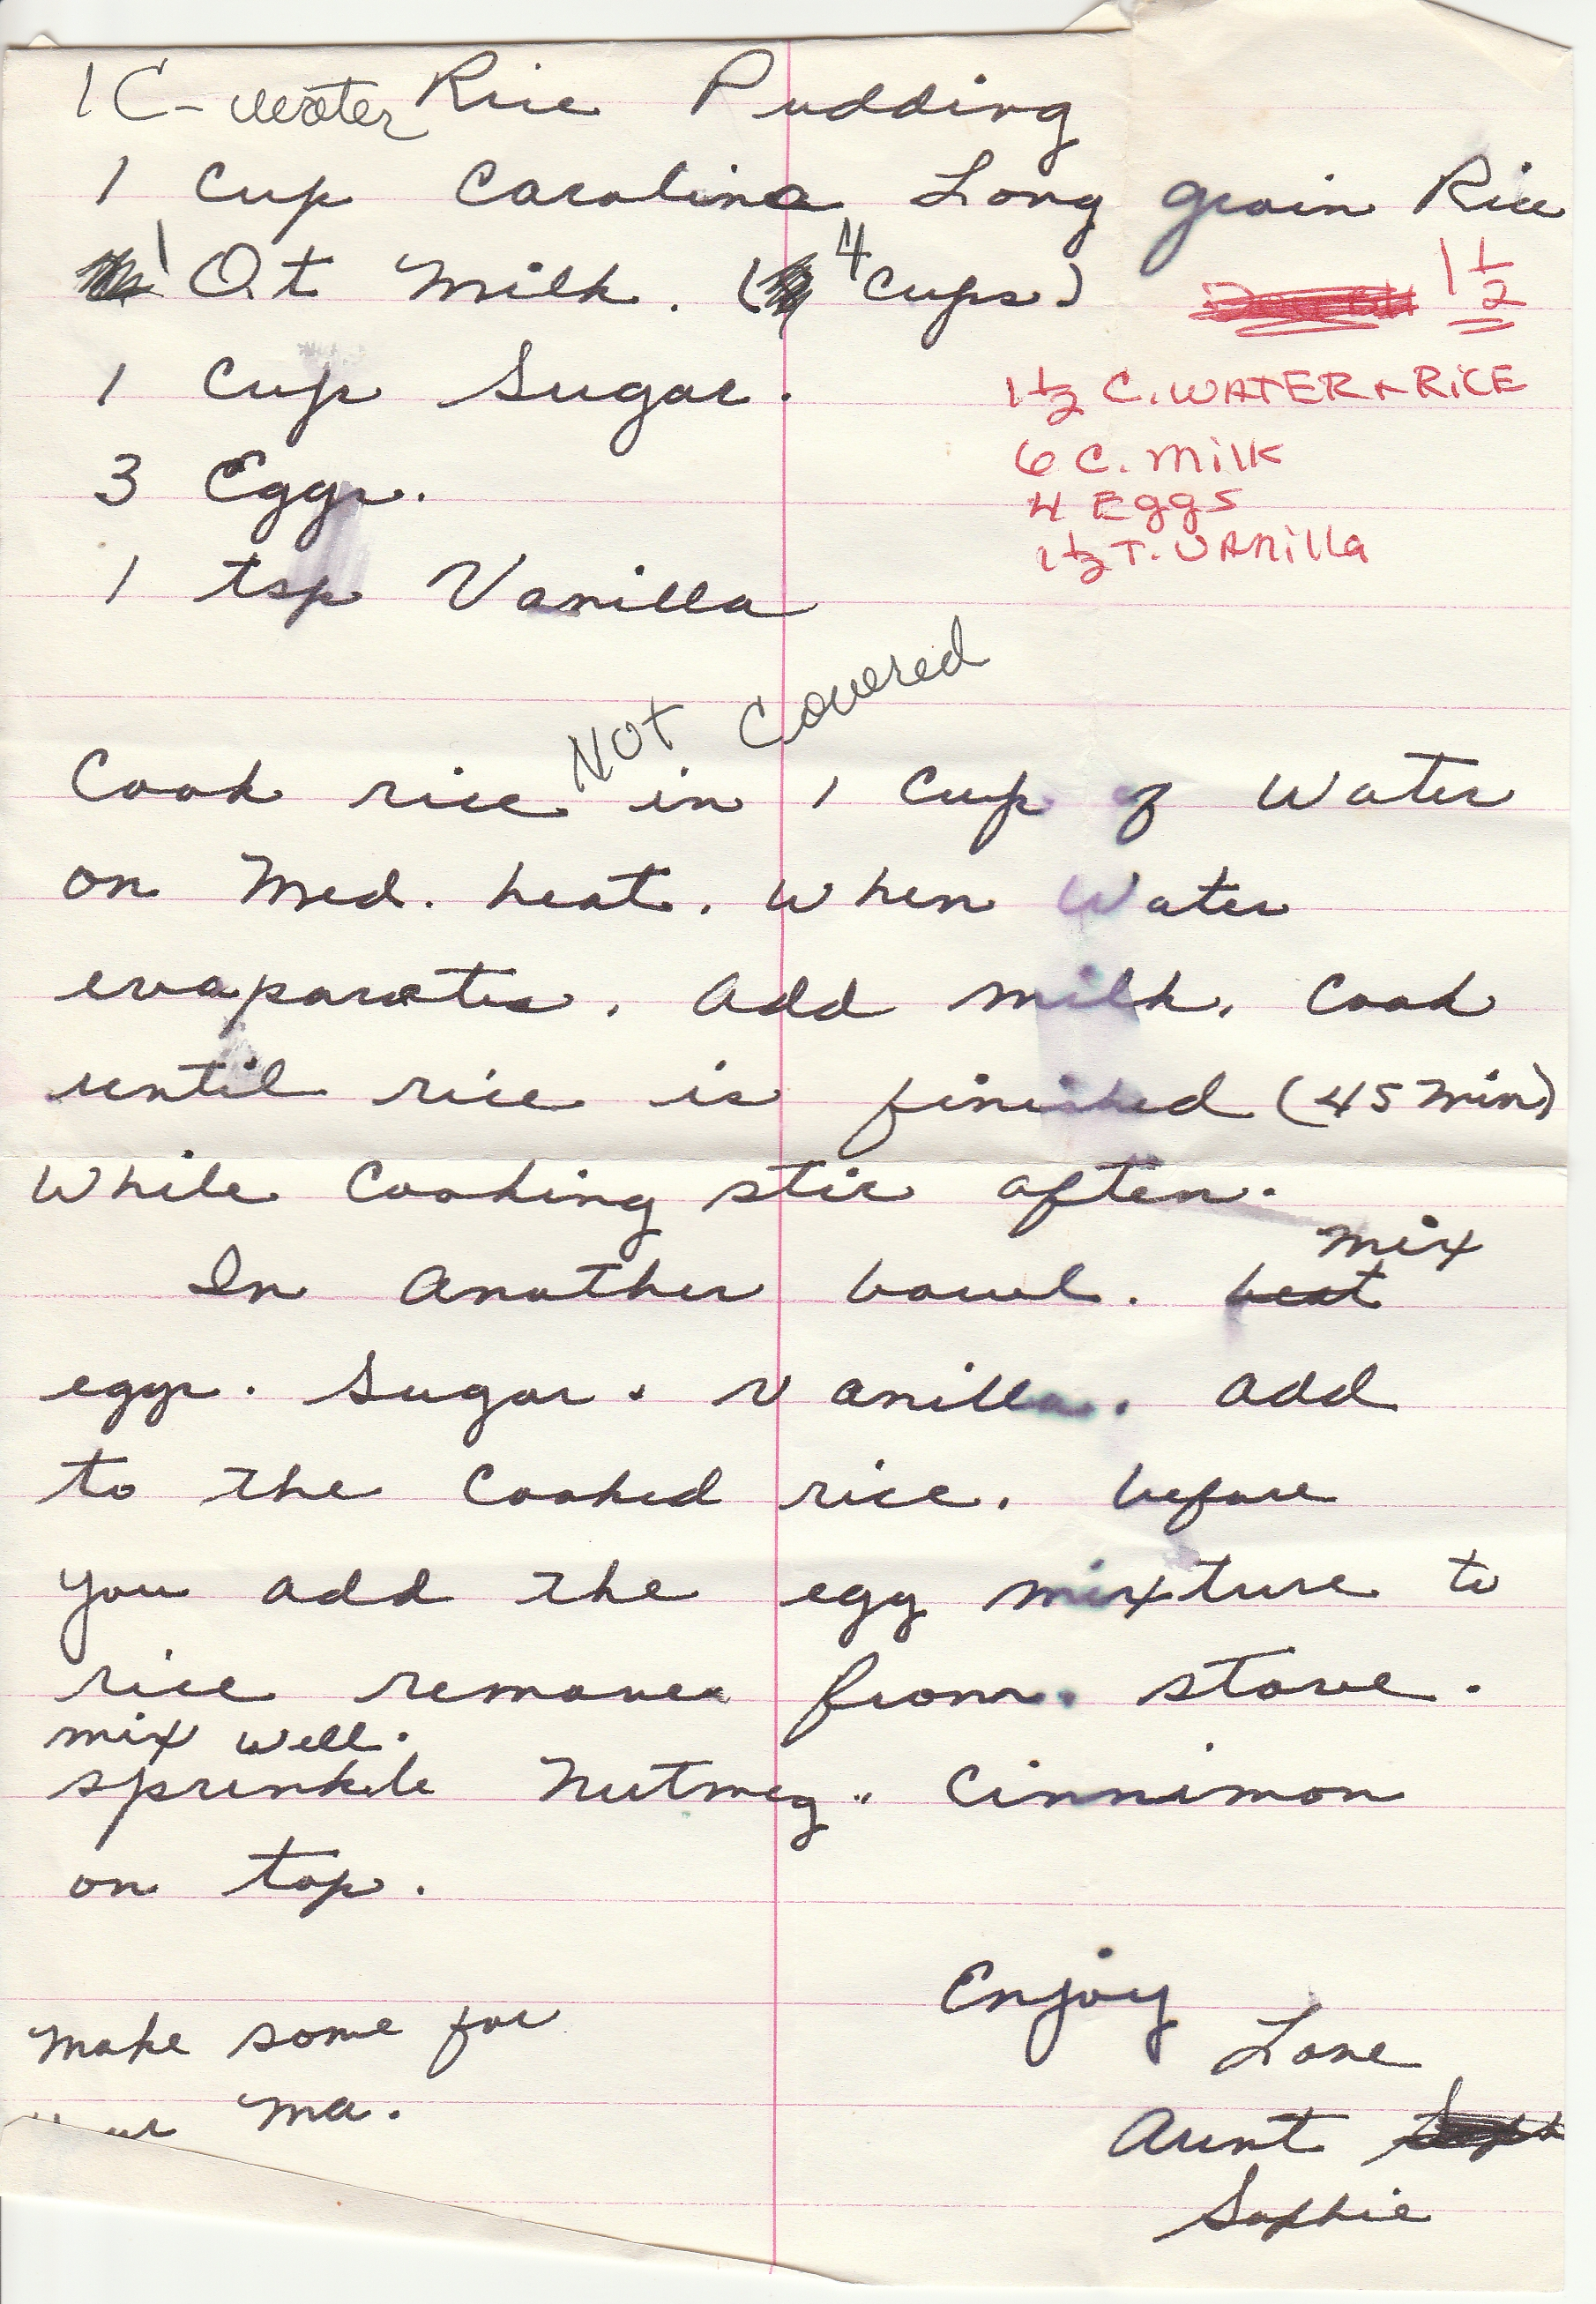 1 C - water Rice Pudding
1 Cup Carolina Long grain Rice
1 Qt Milk. (4 Cups)
1 1/2
1 Cup Sugar.
1 1/2 C. WATER + RiCE
6 C. Milk
3 Eggs.
4 Eggs
1 1/2 T. VAnilla
1 tsp Vanilla
Not Covered
Cook rice in 1 Cup of Water
on Med. heat. When Water
evaporates. Add milk. Cook
until rice is finished (45 min)
While Cooking stir often.
mix
In Another bowl. beat
eggs. Sugar. Vanilla. Add
to the Cooked rice. before
you add the egg mixture to
rice remove from. stove.
mix well.
sprinkle Nutmeg .. Cinnimon
on top.
Enjoy
Make some for
Love
Ma.
Aunt
Sophie